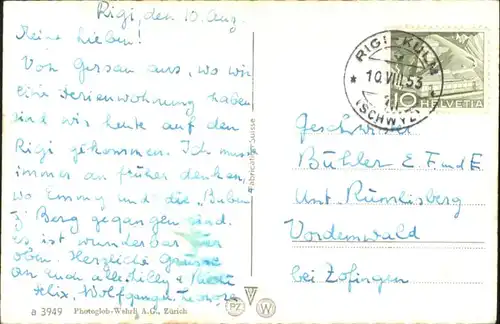 Rigi, den 10. Aug.
Meine Lieben!
Von Gersau aus, wo wir
eine Ferienwohnung haben
sind wir heute auf den
Rigi gekommen. Ich muss
immer an früher denken,
wo Emmy und die "Buben
z' Berg gegangen sind.
Es ist wunderbar hier
oben. Herzliche Grüsse
an Euch alle
Felix, Wolfgang
a 3949 Photoglob-Wehrli A.G., Zürich
Fabrication Suisse
PZ W
RIGI-KULM
10.VIII.53
(SCHWYZ)
10 HELVETIA
Geschwister
Bühler E. F. und E
Unt. Rümlisberg
Vordemwald
bei Zofingen